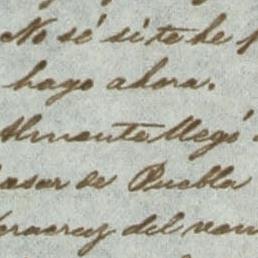 No sé si te he
hago ahora.
Almonte llegó
pasar de Puebla
Veracruz del